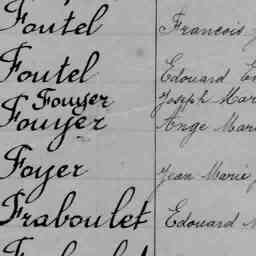 Foutel Francois
Foutel Edouard
Fouyer Joseph Mar
Fouyer Ange Mari
Foyer Jean Marie
Fraboulet Edouard